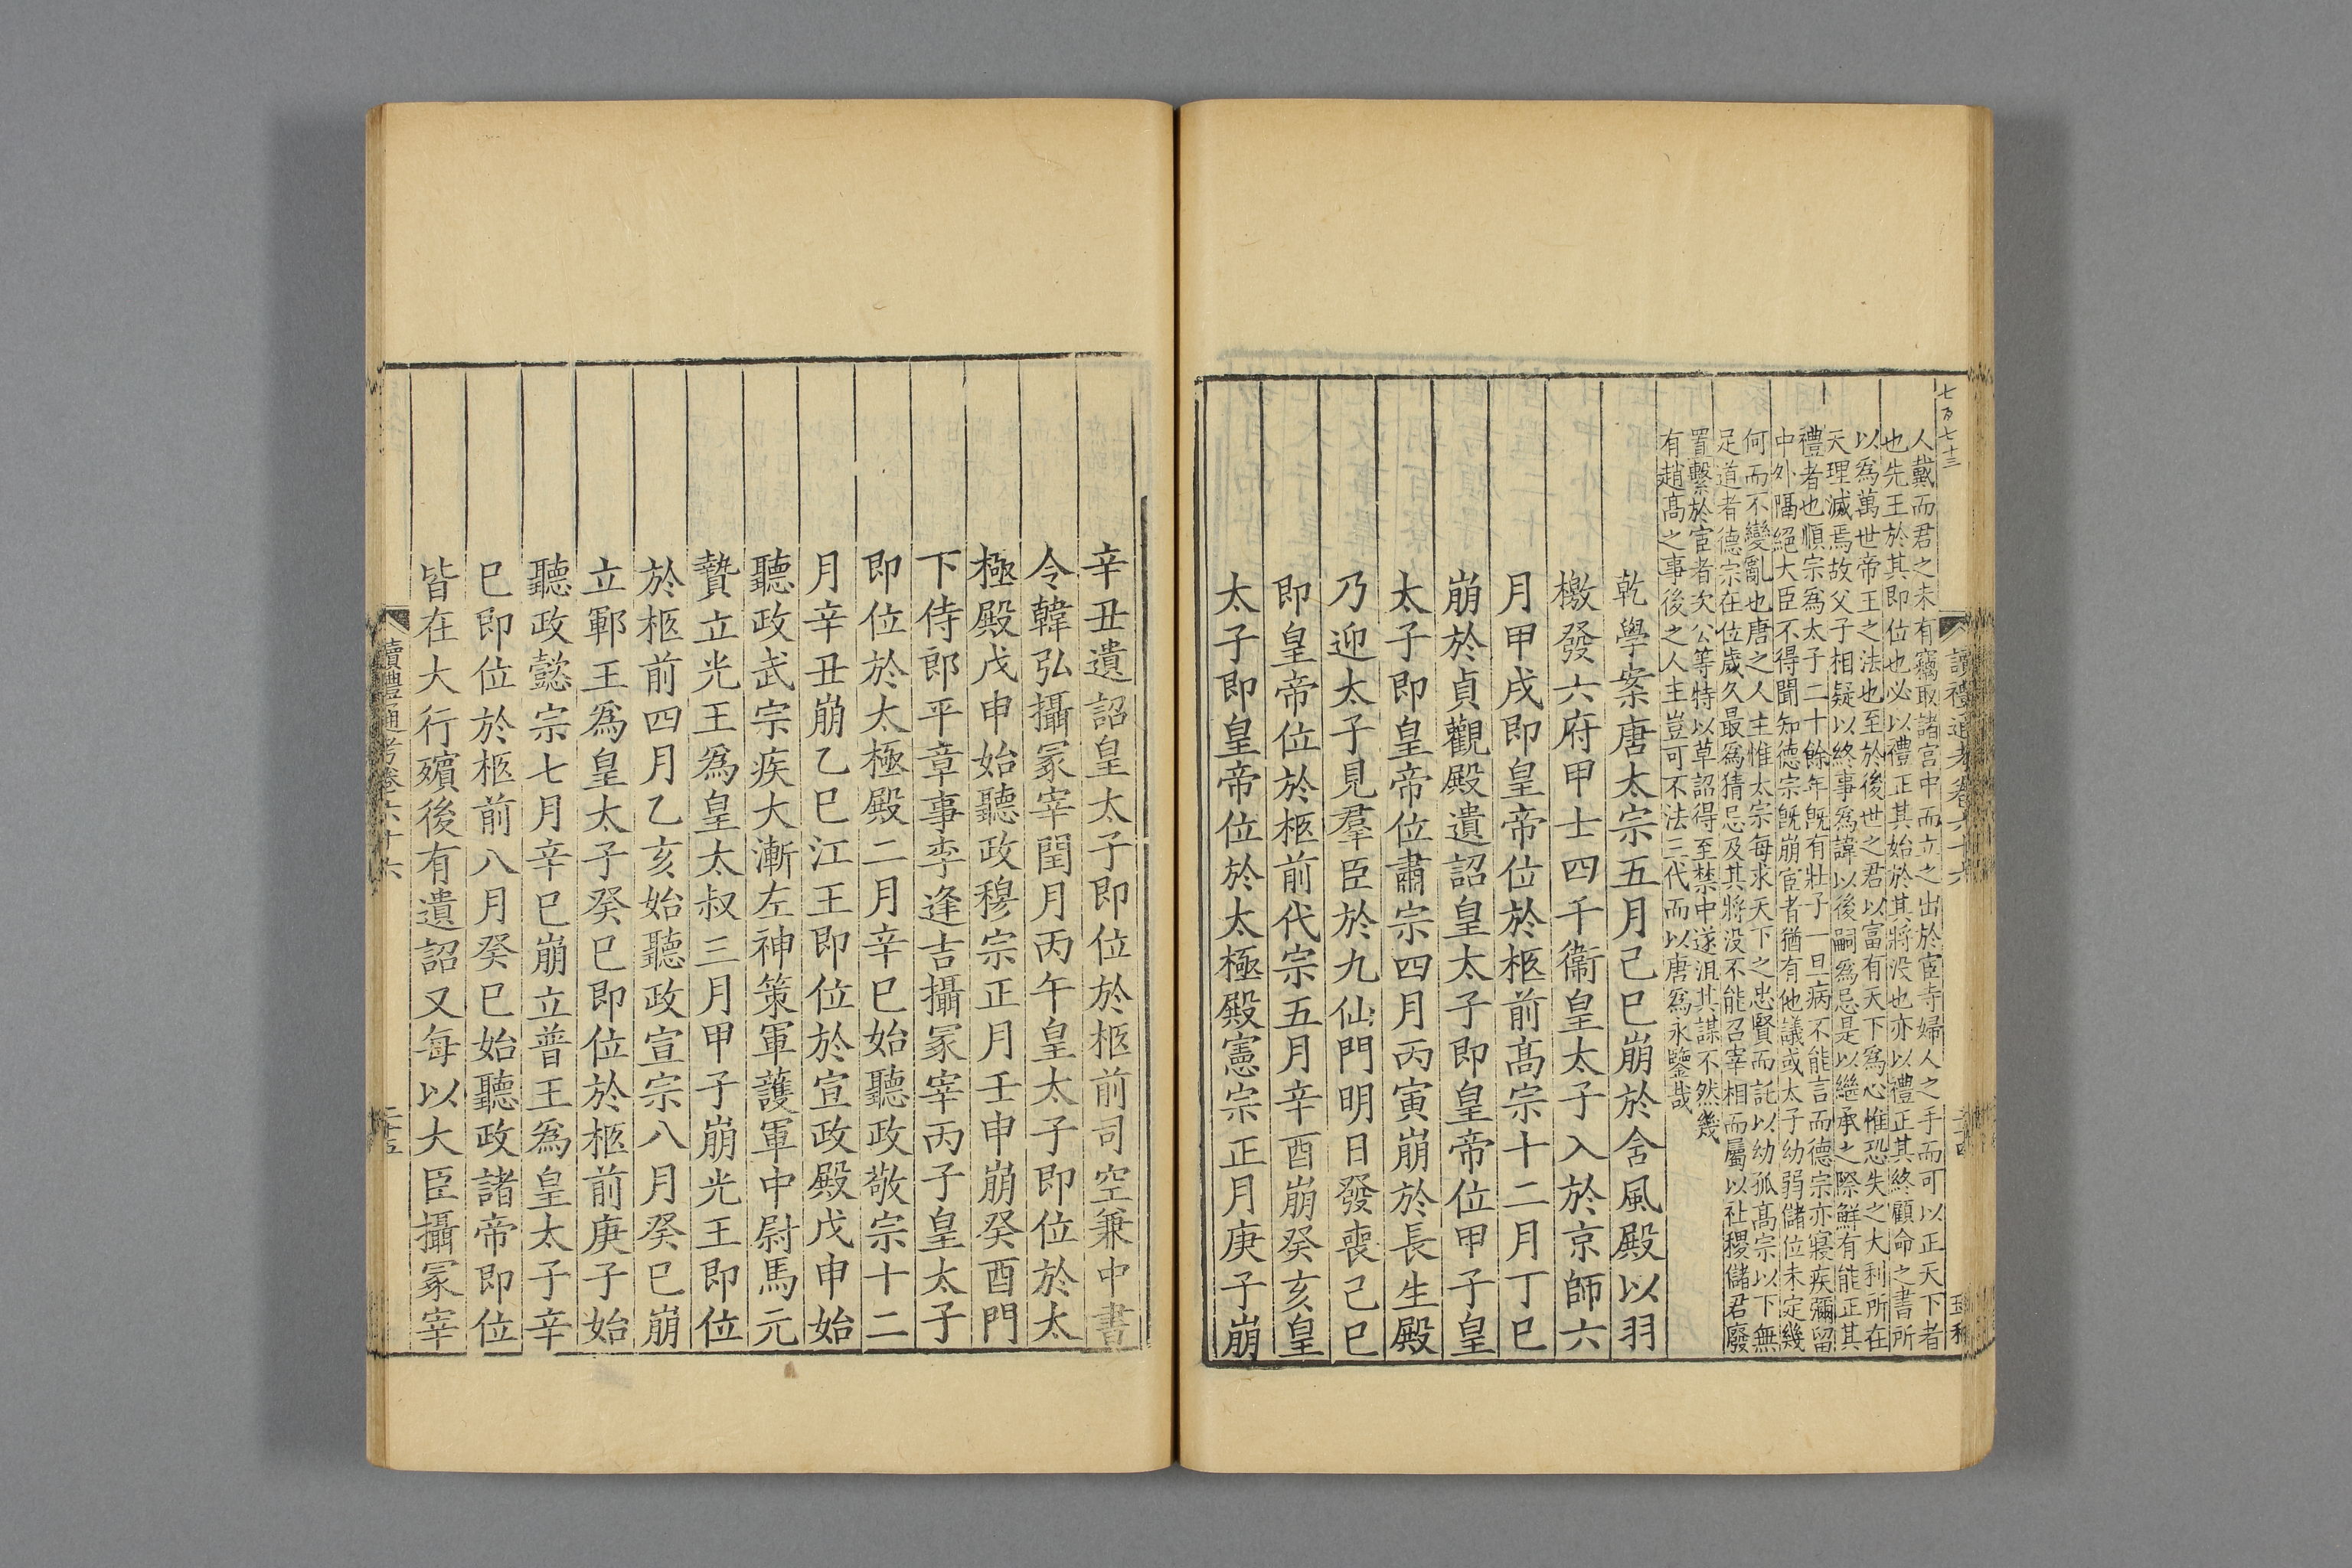 七百七十三
讀禮通考卷六十六
人戴而君之未有竊取諸宮中而立之出於宦寺婦人之手而可以正天下者
也先王於其即位也必以禮正其始於其將没也亦以禮正其終顧命之書所
以爲萬世帝王之法也至於後世之君以富有天下爲心惟恐失之大利所在
天理滅焉故父子相疑以終事爲諱以後嗣爲忌是以繼承之際鮮有能正其
禮者也順宗爲太子二十餘年旣有壯子一旦病不能言而德宗亦寢疾彌留
中外隔絕大臣不得聞知德宗旣崩宦者猶有他議或太子幼弱儲位未定幾
何而不變亂也唐之人主惟太宗每求天下之忠賢而託以幼孤高宗以下無
足道者德宗在位歲久最爲猜忌及其將没不能召宰相而屬以社稷儲君廢
置繫於宦者次公等特以草詔得至禁中遂沮其謀不然幾
有趙高之事後之人主豈可不法三代而以唐爲永鑒哉
乾學案唐太宗五月己巳崩於含風殿以羽
檄發六府甲士四千衞皇太子入於京師六
月甲戌即皇帝位於柩前高宗十二月丁巳
崩於貞觀殿遺詔皇太子即皇帝位甲子皇
太子即皇帝位肅宗四月丙寅崩於長生殿
乃迎太子見羣臣於九仙門明日發喪己巳
即皇帝位於柩前代宗五月辛酉崩癸亥皇
太子即皇帝位於太極殿憲宗正月庚子崩
辛丑遺詔皇太子即位於柩前司空兼中書
令韓弘攝冢宰閏月丙午皇太子即位於太
極殿戊申始聽政穆宗正月壬申崩癸酉門
下侍郎平章事李逢吉攝冢宰丙子皇太子
即位於太極殿二月辛巳始聽政敬宗十二
月辛丑崩乙巳江王即位於宣政殿戊申始
聽政武宗疾大漸左神策軍護軍中尉馬元
贄立光王爲皇太叔三月甲子崩光王即位
於柩前四月乙亥始聽政宣宗八月癸巳崩
立鄆王爲皇太子癸巳即位於柩前庚子始
聽政懿宗七月辛巳崩立普王爲皇太子辛
巳即位於柩前八月癸巳始聽政諸帝即位
皆在大行殯後有遺詔又每以大臣攝冢宰
讀禮通考卷六十六
二十五